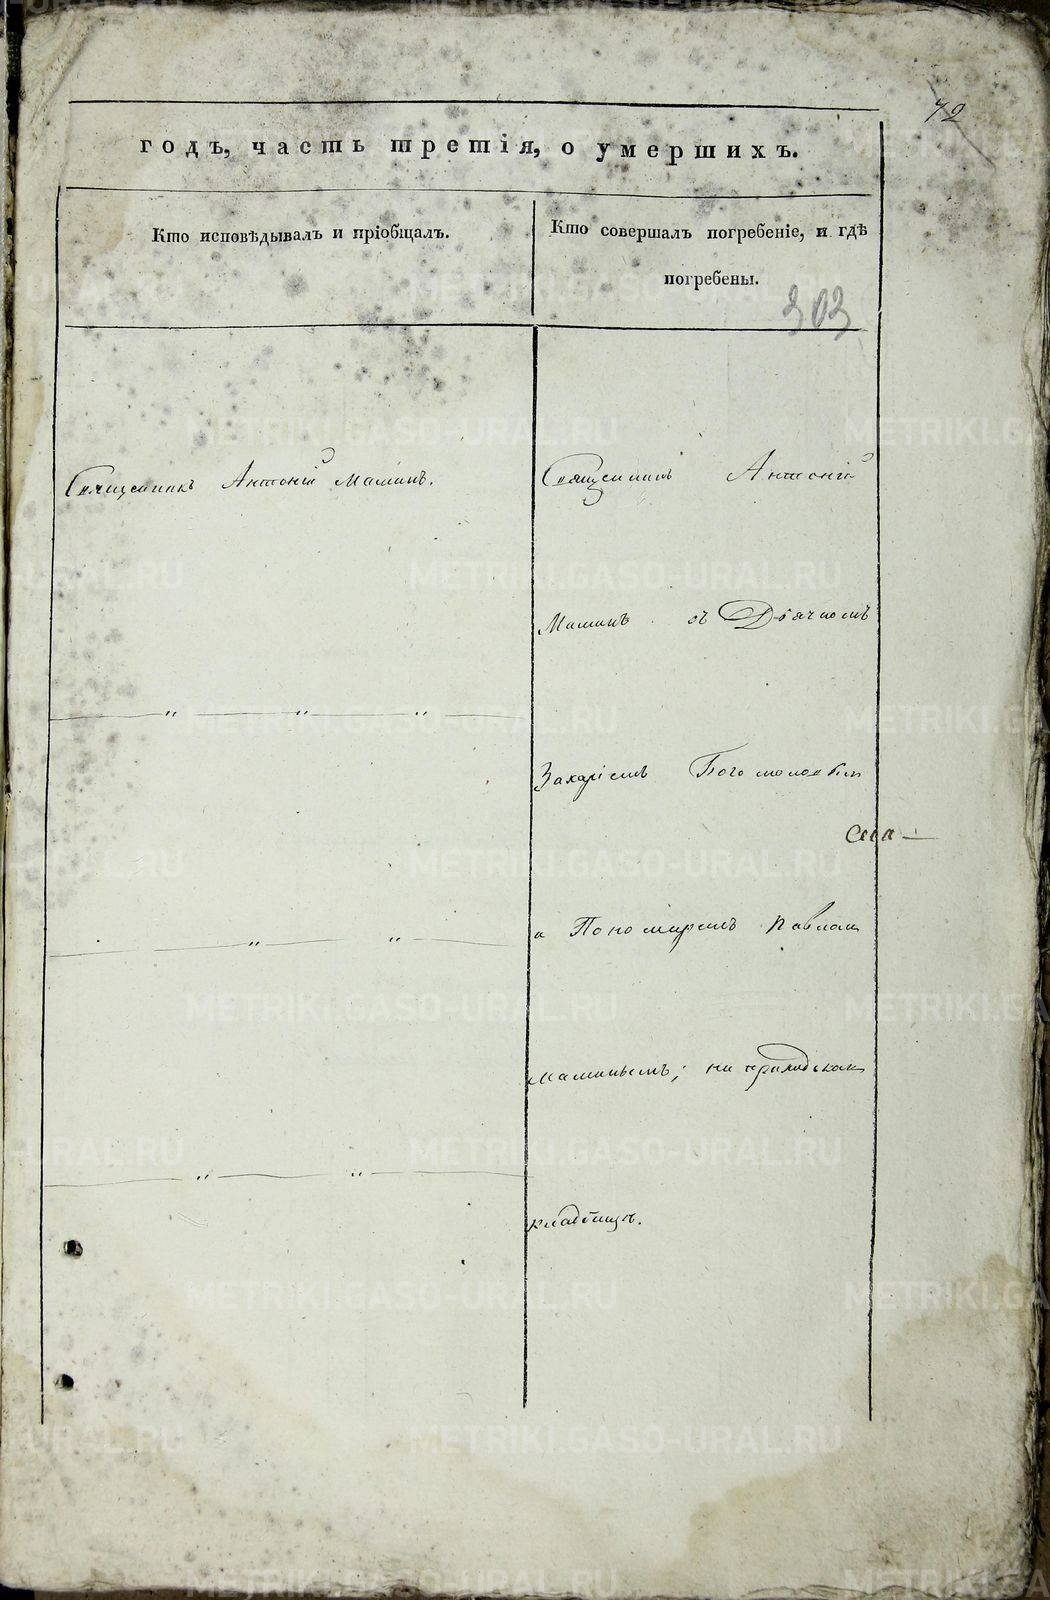 72
годъ, часть третія, о умершихъ.
Кто исповѣдывалъ и пріобщалъ.
Кто совершалъ погребеніе, и гдѣ
погребены.
303
Священникъ Антоній Маминъ.
Священникъ Антоній
Маминъ съ Дьячкомъ
Захаріемъ Богомоловым
и Пономаремъ Павлом
Маминымъ; на приходскам
кладбищѣ.
METRIKI.GASO-URAL.RU